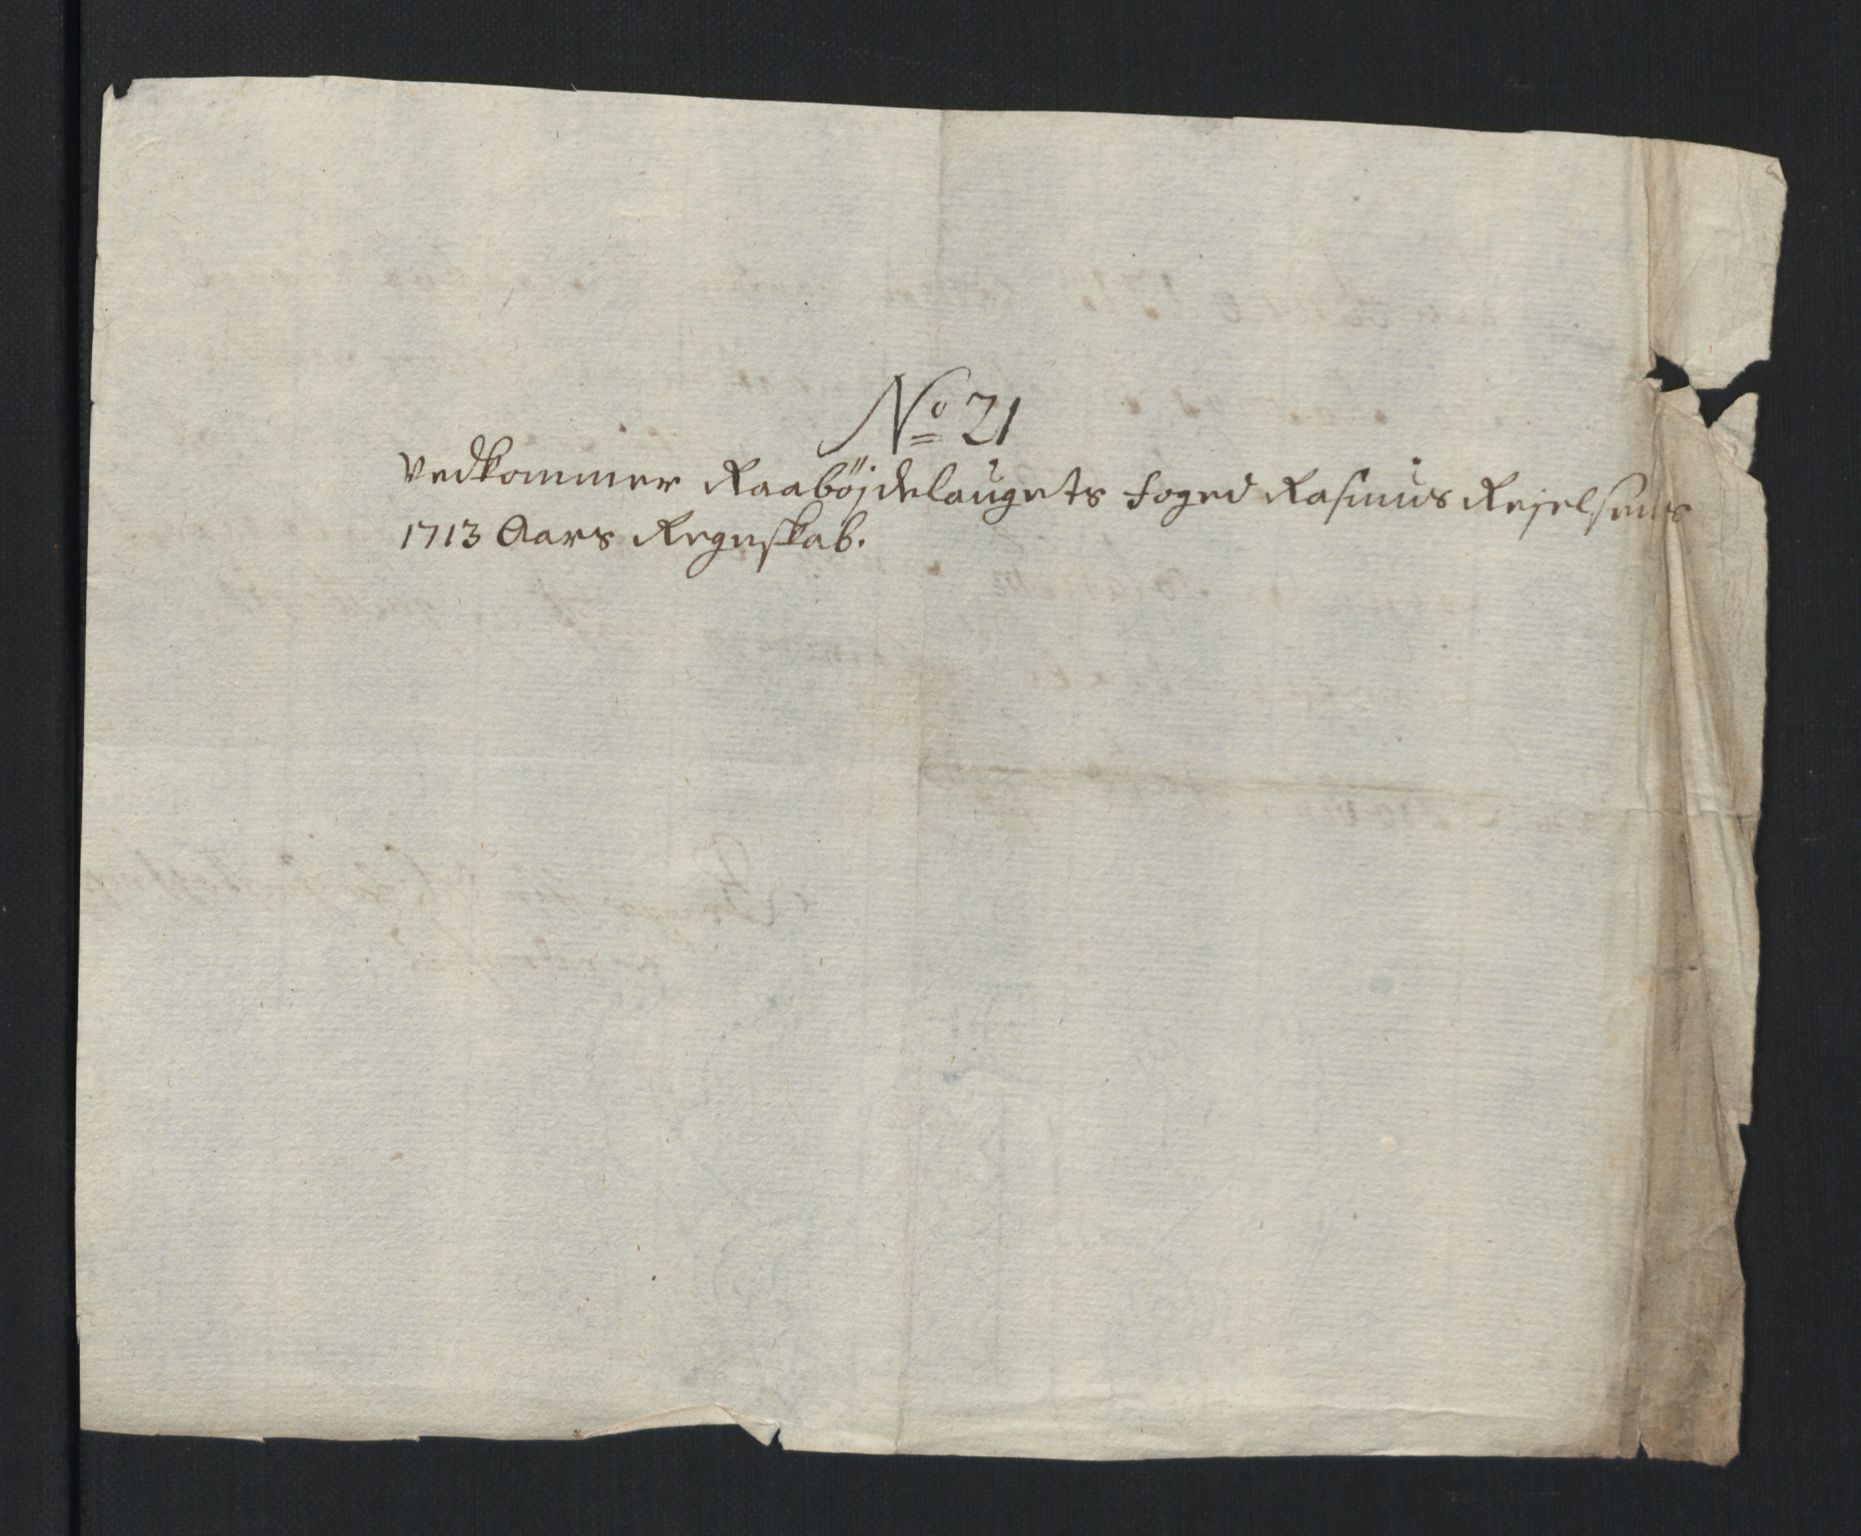 No 21
Vedkommer Raabøjdelaugets foged Rasmus Rejelsens
1713 Aars Regnskab.